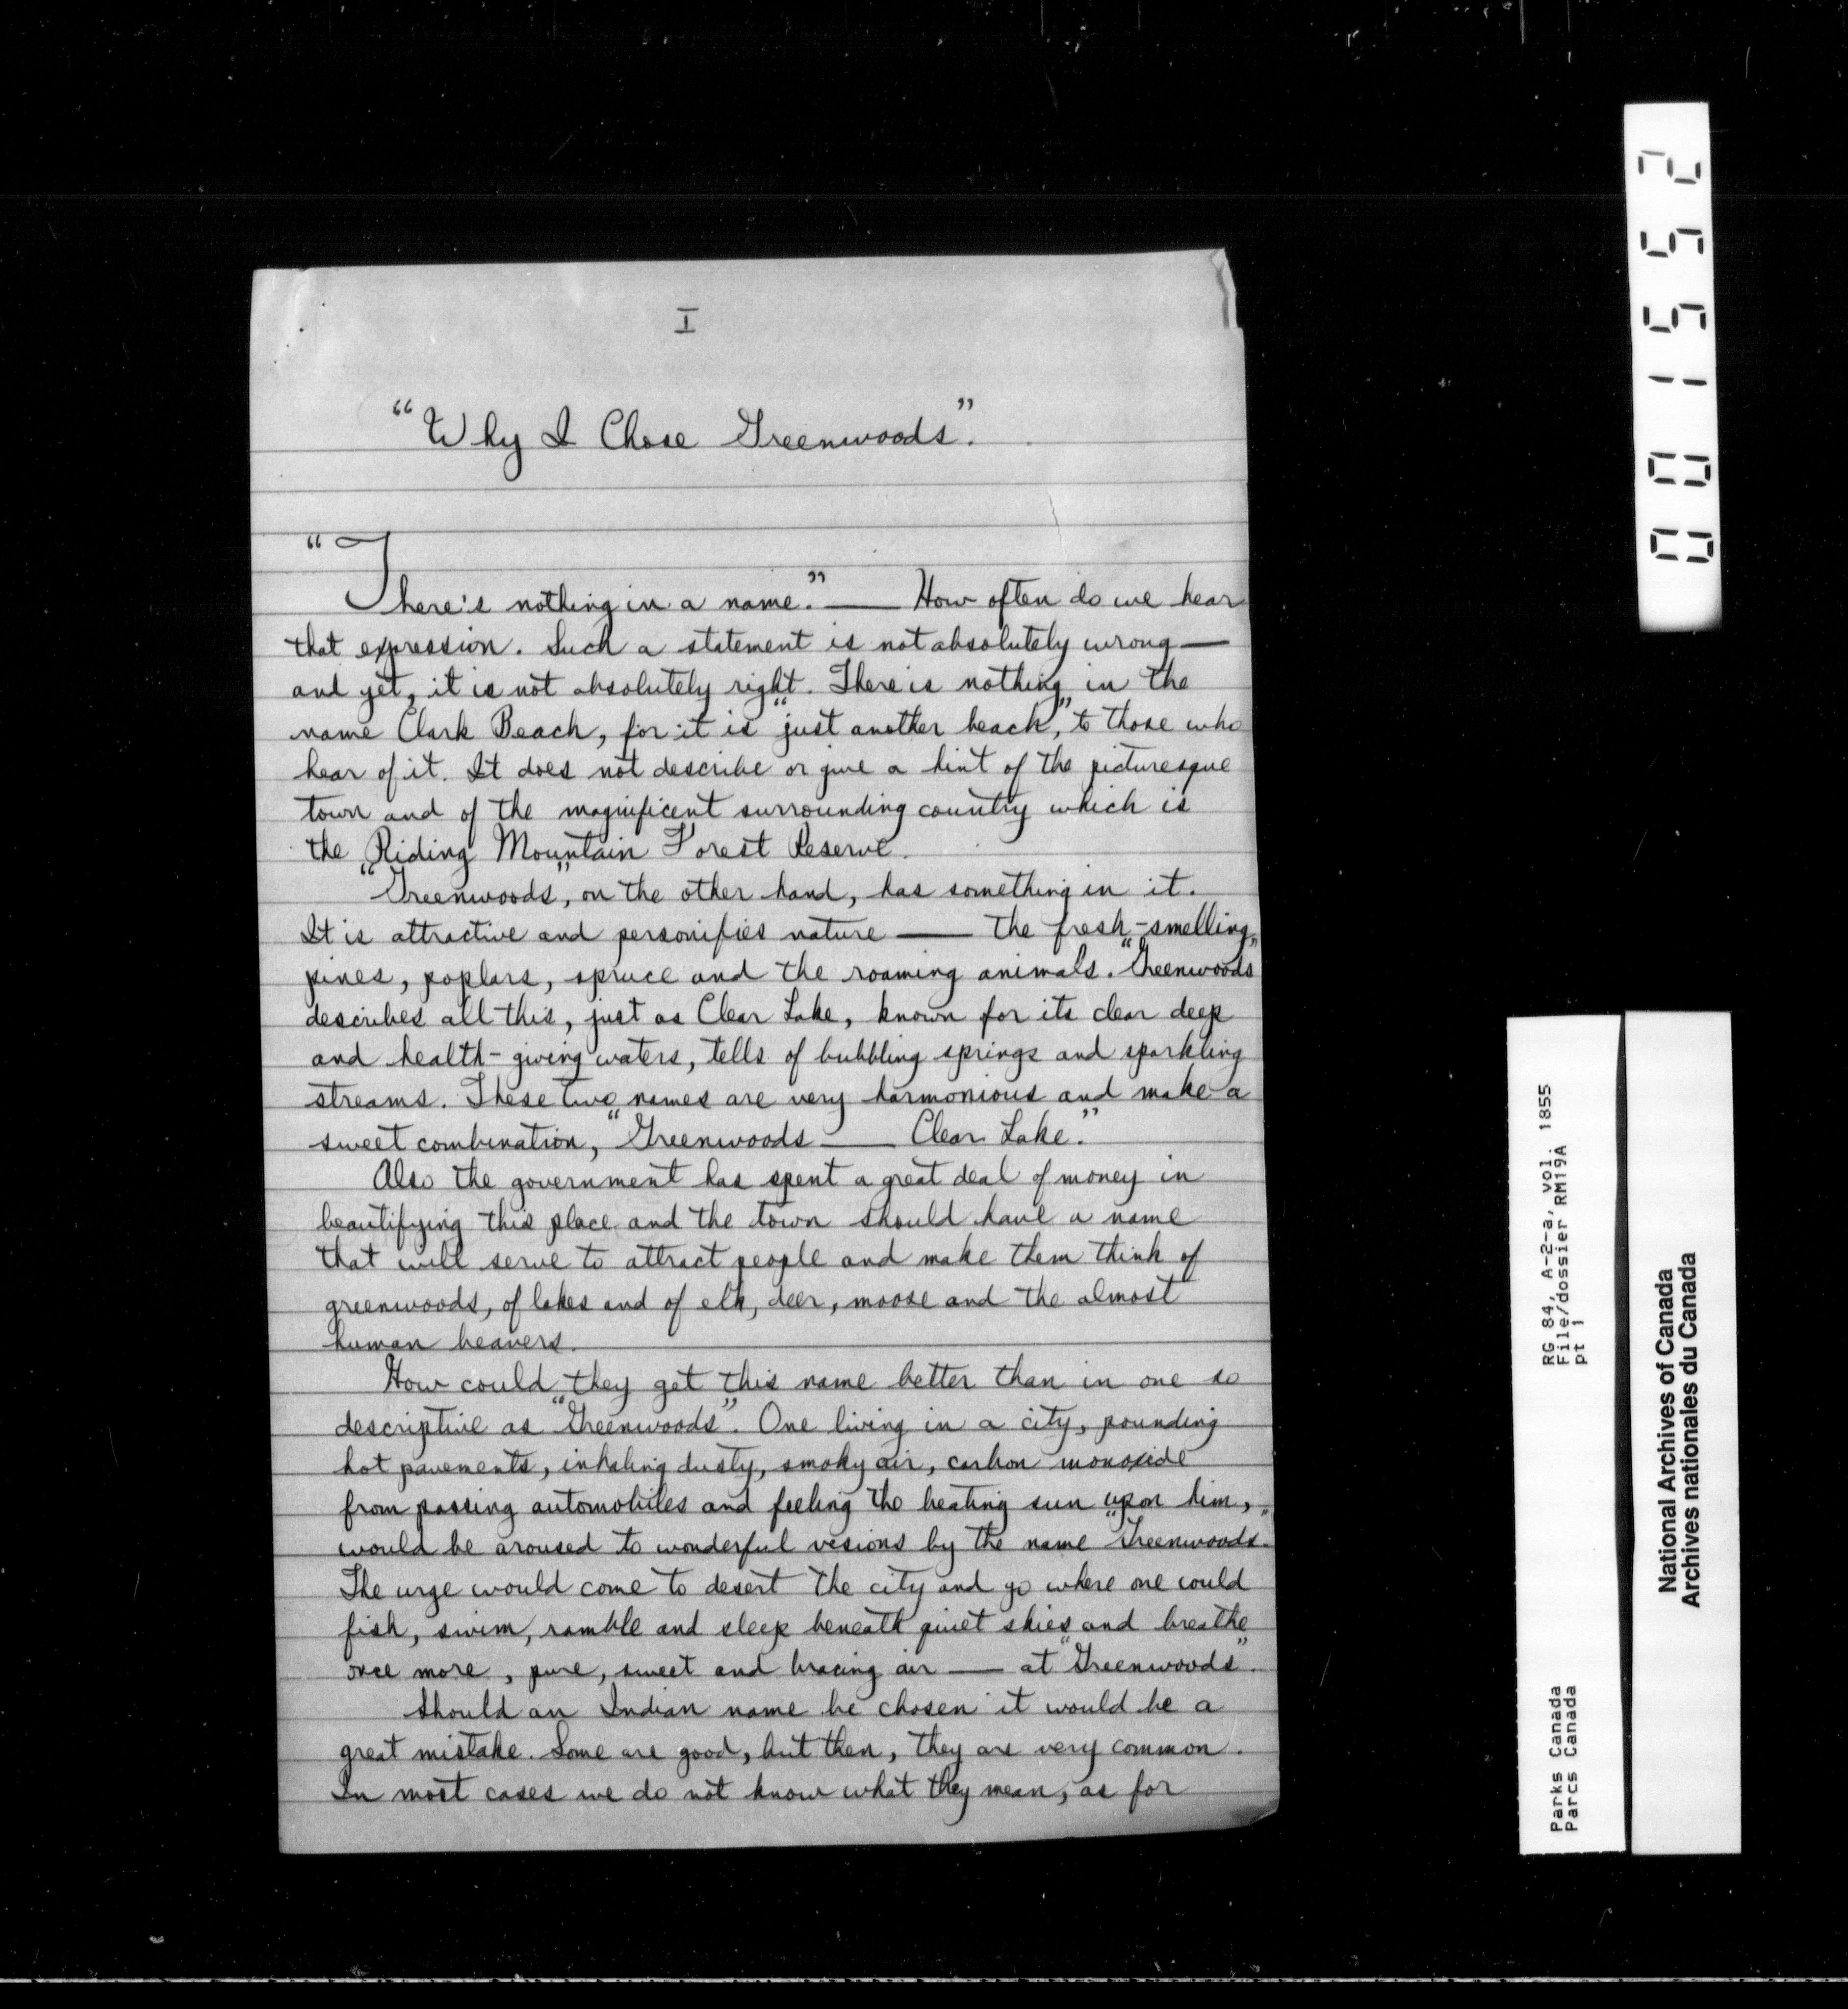 I
"Why I Chose Greenwoods".
"There's nothing in a name." — How often do we hear
that expression. Such a statement is not absolutely wrong —
and yet, it is not absolutely right. There is nothing in the
name Clark Beach, for it is "just another beach", to those who
hear of it. It does not describe or give a hint of the picturesque
town and of the magnificent surrounding country which is
the Riding Mountain Forest Reserve.
"Greenwoods", on the other hand, has something in it.
It is attractive and personifies nature — the fresh-smelling
pines, poplars, spruce and the roaming animals. "Greenwoods"
describes all this, just as Clear Lake, known for its clear deep
and health-giving waters, tells of bubbling springs and sparkling
streams. These two names are very harmonious and make a
sweet combination, "Greenwoods — Clear Lake."
Also the government has spent a great deal of money in
beautifying this place and the town should have a name
that will serve to attract people and make them think of
greenwoods, of lakes and of elk, deer, moose and the almost
human beavers.
How could they get this name better than in one so
descriptive as "Greenwoods". One living in a city, pounding
hot pavements, inhaling dusty, smoky air, carbon monoxide
from passing automobiles and feeling the beating sun upon him,
would be aroused to wonderful visions by the name "Greenwoods".
The urge would come to desert the city and go where one could
fish, swim, ramble and sleep beneath quiet skies and breathe
once more, pure, sweet and bracing air — at "Greenwoods".
Should an Indian name be chosen it would be a
great mistake. Some are good, but then, they are very common.
In most cases we do not know what they mean, as for
001552
RG 84, A-2-a, vol. 1855
File/dossier RM19A
pt 1
Parks Canada
Parcs Canada
National Archives of Canada
Archives nationales du Canada